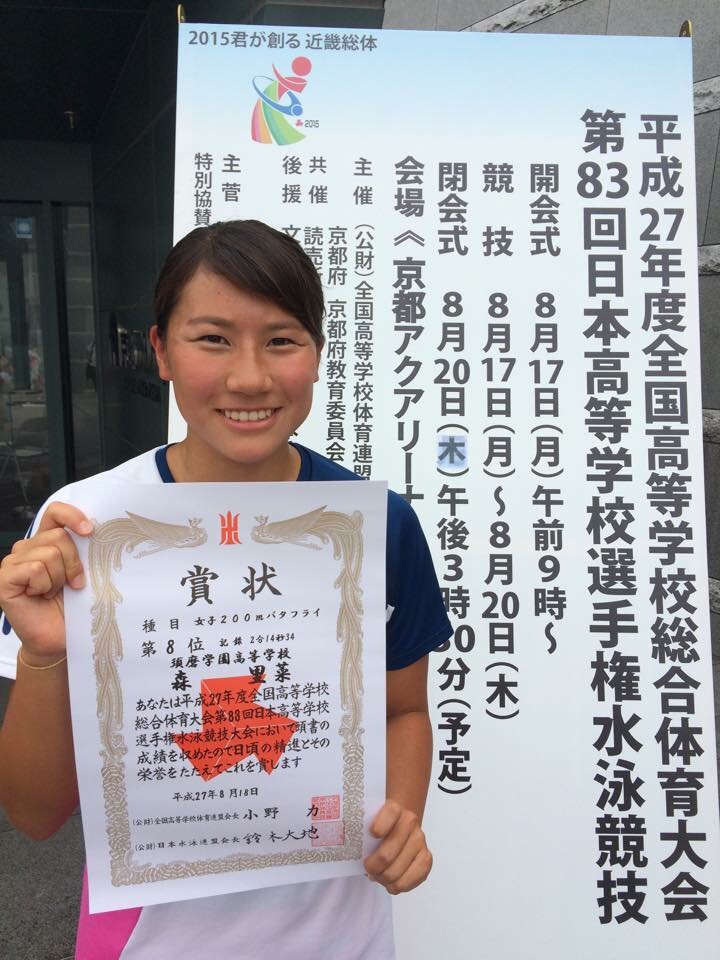 2015君が創る 近畿総体
2015
平成27年度全国高等学校総合体育大会
第83回日本高等学校選手権水泳競技
開会式 8月17日(月)午前9時〜
競技 8月17日(月)〜8月20日(木)
閉会式 8月20日(木)午後3時30分(予定)
会場《京都アクアリーナ
主催 (公財)全国高等学校体育連盟
京都府 京都府教育委員会
共催 読売
後援 文
主菅
特別協賛
賞状
種目 女子200mバタフライ
第8位 記録 2分14秒34
須磨学園高等学校
森 里菜
あなたは平成27年度全国高等学校
総合体育大会第83回日本高等学校
選手権水泳競技大会において頭書の
成績を収めたので日頃の精進とその
栄誉をたたえてこれを賞します
平成27年8月18日
(公財)全国高等学校体育連盟会長 小野 力
(公財)日本水泳連盟会長 鈴木大地